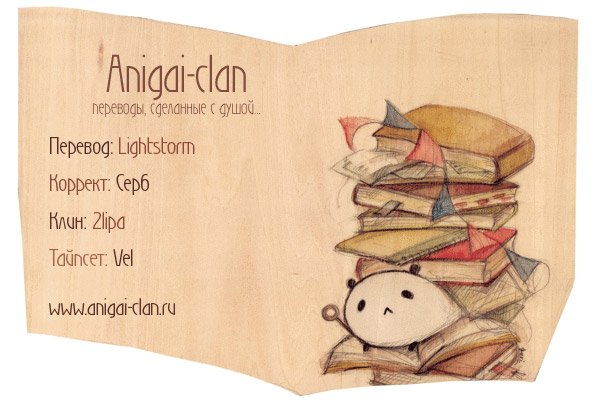 Anigai-clan
переводы, сделанные с душой...
Перевод: Lightstorm
Коррект: Серб
Клин: 2lipa
Тайпсет: Vel
www.anigai-clan.ru